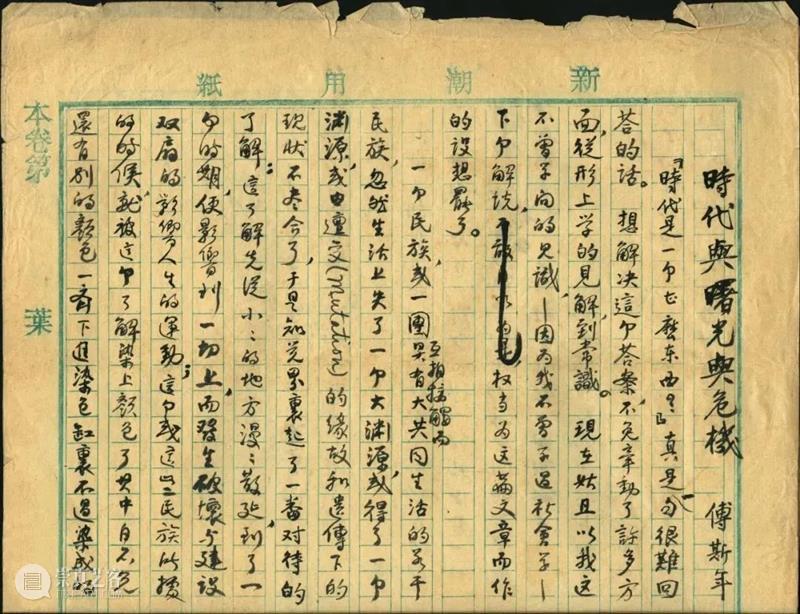 新潮用紙
時代與曙光與危機 傅斯年
『時代是一个甚麼东西?』真是一句很難回
答的話。想解决這个答案,不免牽動了許多方
面,從形上学的見解,到常識。現在姑且以我這
不曾学问的见識—因为我不曾学过社會学—
下个解说,权当为这篇文章而作
的设想罢了。
一个民族,或一團具有互相接觸而大共同生活的若干
民族,忽然生活上失了一个大渊源,或得了一个
渊源,或由遭变(Mutation)的缘故,和遗傳下的
现状不尽合了,于是知觉界裏起了一番对待的
了解:這了解先從小小的地方漫漫散延,到了一
个时期,便影響到一切上,而發生破壞与建設
双层的影響人生的運動,這个或這些民族所
的时候,就被這个了解染上颜色了。其中自不免
還有别的颜色一齐下進染色缸裏,不過染成的
本卷第 葉
崇正艺客